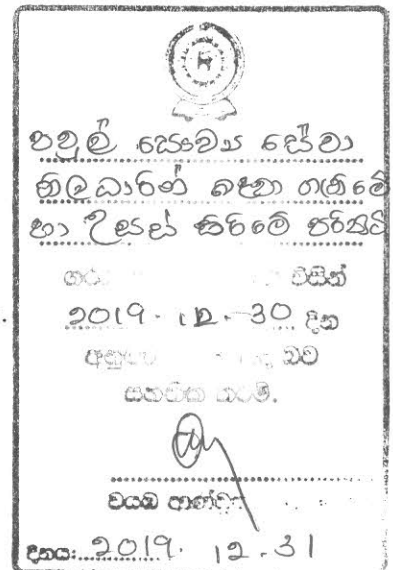 පවුල් සෞඛ්‍ය සේවා
නිලධාරින් බඳවා ගැනීමේ
හා උසස් කිරීමේ පරිපාටි
විසින්
2019. 12. 30 දින
බව
සහතික කරමි.
වයඹ
දිනය: 2019. 12. 31